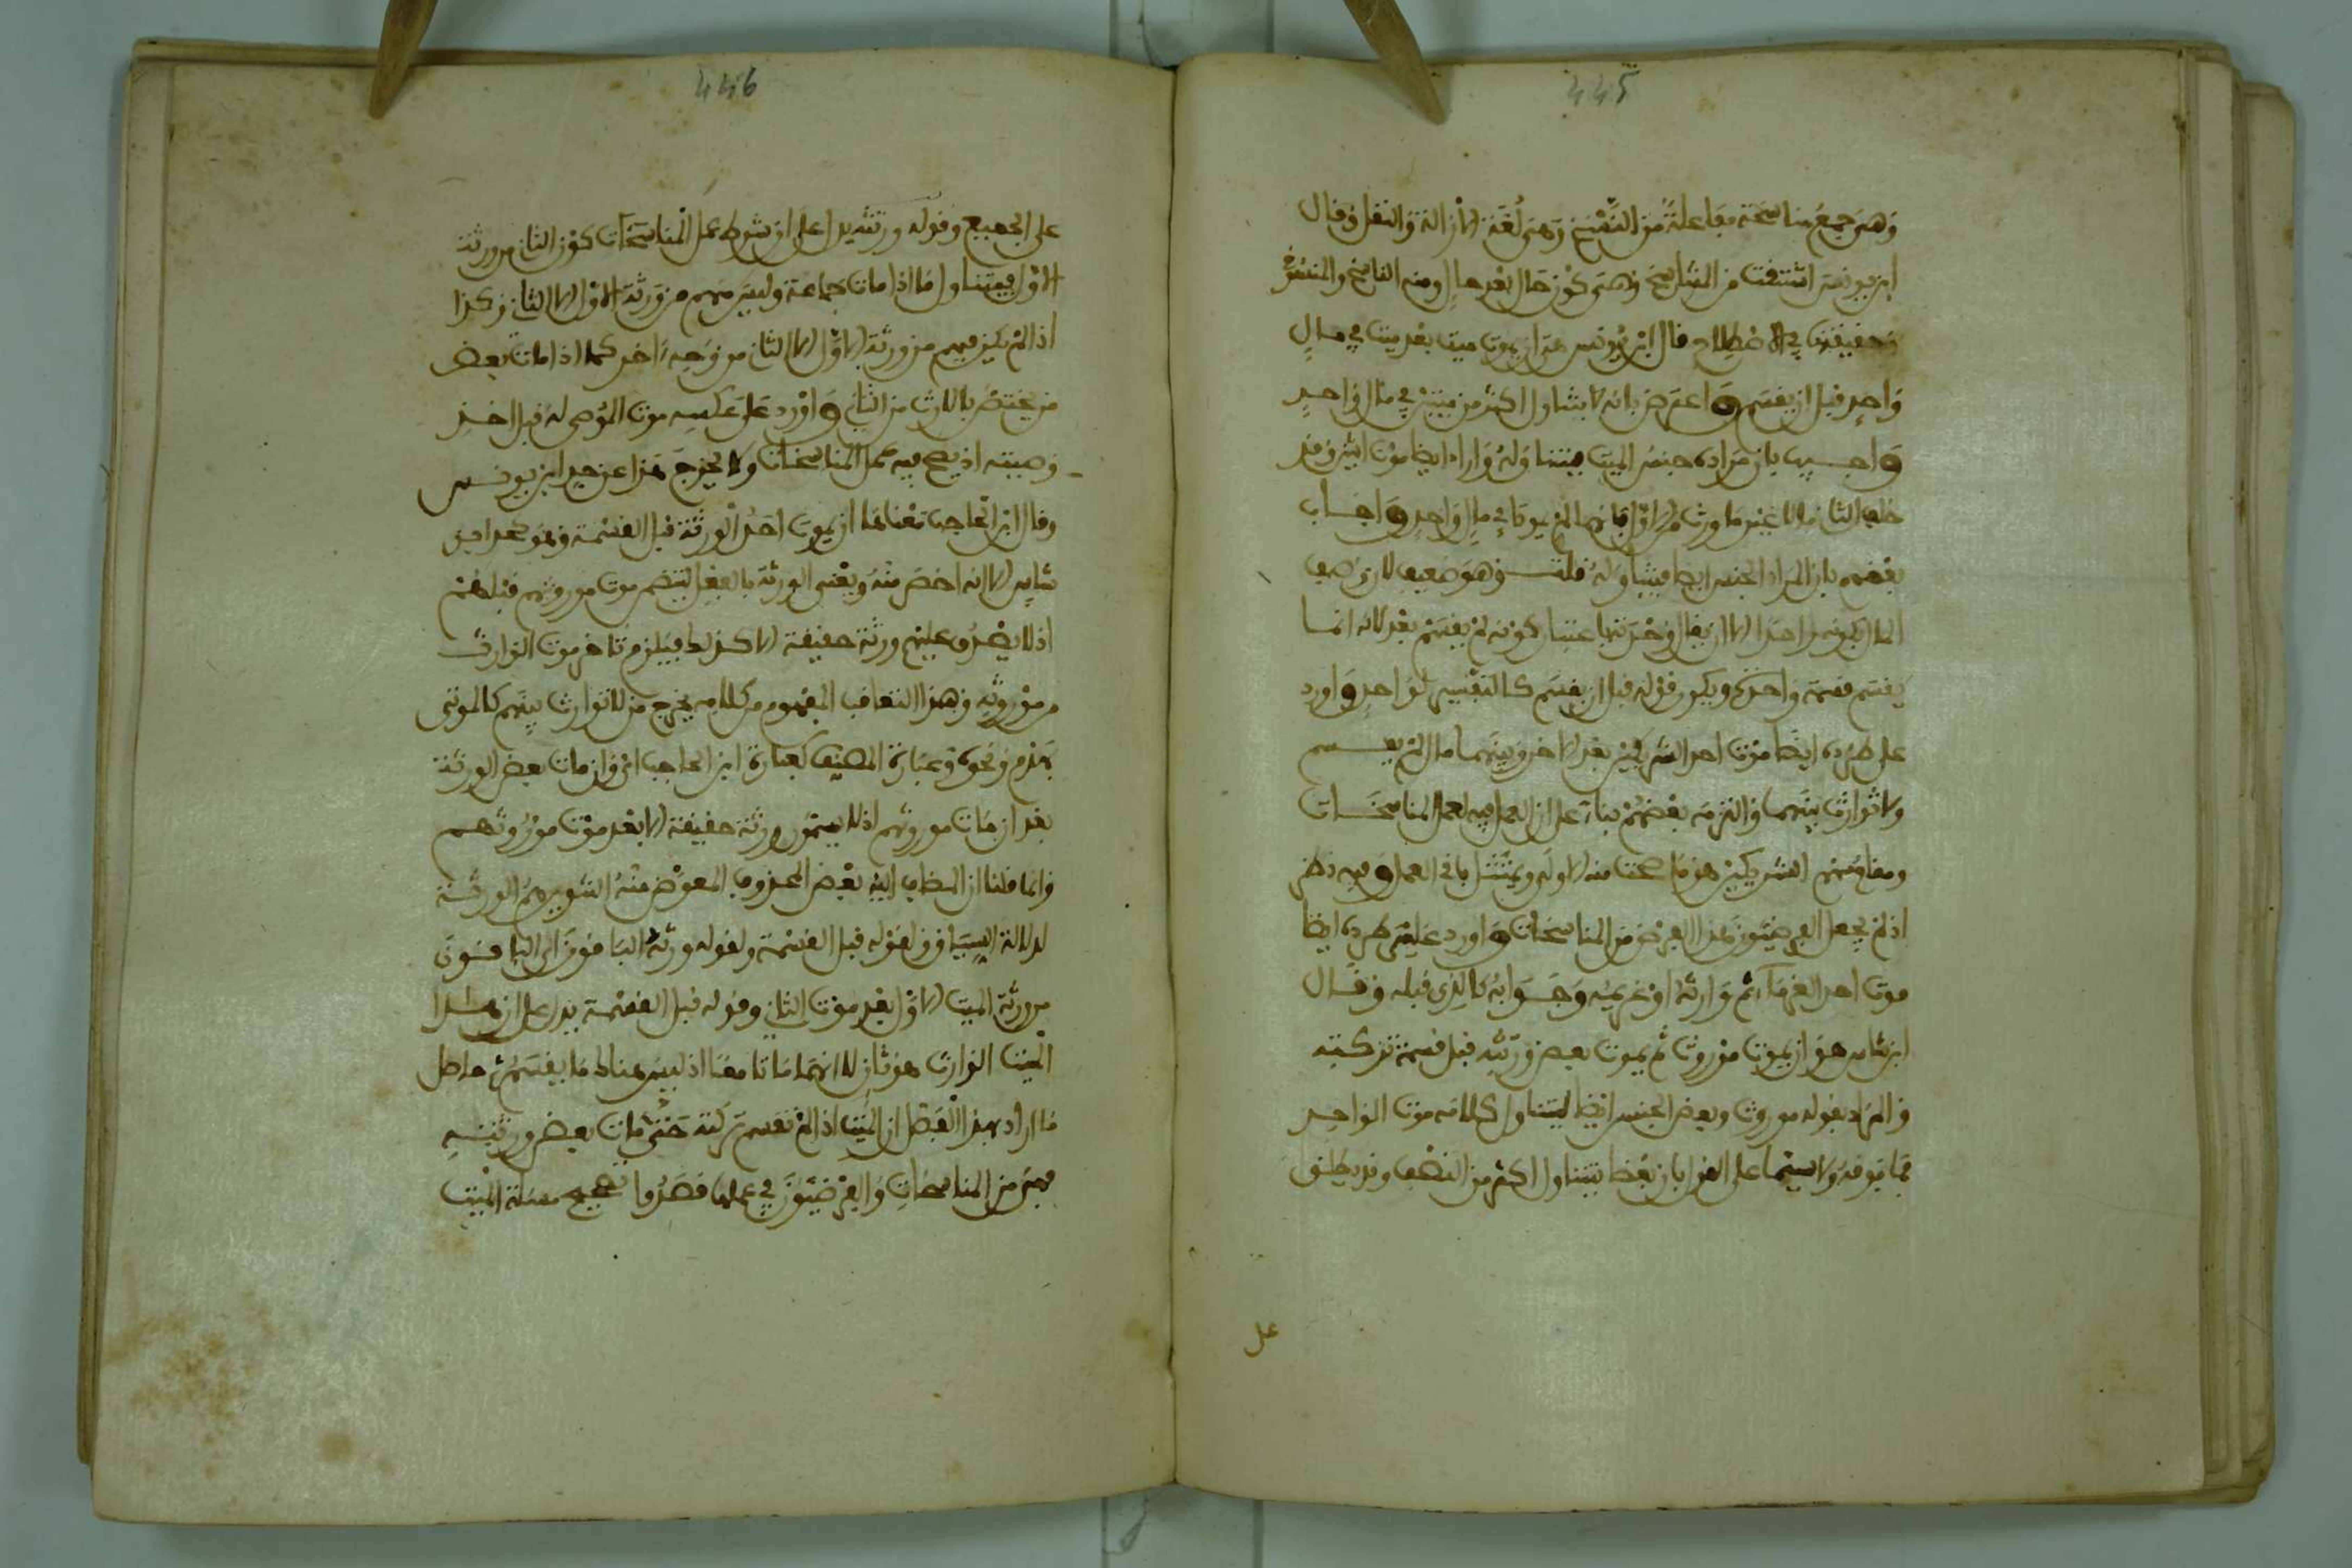 445
وهي جمع مناسخة مفاعلة من النسخ وهي لغة الازالة والنقل وقال
ابن يونس اشتقت من التناسخ وهي كون حال بعد حال ومنه الناسخ والمنسوخ
وحقيقتها في الاصطلاح قال ابن يونس هو ان يموت ميت بعد ميت في مال
واحد قبل ان يقسم واعترض بانه لا يتناول اكثر من ميتين في مال واحد
واجيب بان مراده جنس الميت فيتناوله واراد ايضا موت اثنين وقد
خلف الثاني مالا غير ما ورث من الاول فانهما لم يموتا في مال واحد واجاب
بعضهم بان المراد الجنس ايضا فيتناوله قلت وهو ضعيف لان وصف
المال بكونه واحدا الا ان يقال وحدته باعتبار كونه لم يقسم بعد لانه انما
يقسم قسمة واحدة ويكون قوله قبل ان يقسم كالتفسير لواحد واورد
على طرده ايضا موت احد الشريكين بعد الاخر وبينهما مال لم يقسم
ولا توارث بينهما والتزمه بعضهم بناء على ان العمل فيه عمل المناسخات
ومقام الشريكين هو ما صحت منه الاولى ويمتثل باقي العمل وفيه نظر
اذ لم يجعل الفرضيون هذا الفرض من المناسخات واورد على طرده ايضا
موت احد الغرماء ثم وارثه او غريمه وجوابه كالذي قبله وقال
ابن شاس هو ان يموت موروث ثم يموت بعض ورثته قبل قسمة تركته
والمراد بقوله موروث وبعض الجنس ايضا ليتناول كلامه موت الواحد
فما فوقه ولا سيما على القول بان بعضا يتناول اكثر من النصف وقد يطلق
على
446
على الجميع وقوله ورثته يدل على ان شرط عمل المناسخات كون الثاني من ورثة
الاول فيتناول ما اذا مات جماعة وليس منهم من ورثة الاول الا الثاني وكذا
اذا لم يكن فيهم من ورثة الاول الا الثاني من وجه اخر كما اذا مات بعض
من يختص بالارث من الثاني واورد على عكسه موت الموصى له قبل اخذ
وصيته اذ يصح فيه عمل المناسخات ولا يخرج هذا عن حد ابن يونس
وقال ابن الحاجب معناها ان يموت احد الورثة قبل القسمة وهو كحد ابن
شاس الا انه اخصر منه ويعني الورثة بالفعل لتضمر موت موروثهم قبلهم
اذ لا يصدق عليهم ورثة حقيقة الا كذلك فيلزم تاخر موت الوارث
عن موروثه وهذا التعاقب المفهوم من كلامه يخرج من لا توارث بينهم كالموتى
بهدم ونحوه وعبارة المصنف كعبارة ابن الحاجب اي وان مات بعض الورثة
بعد ان مات موروثهم اذ لا يسمون ورثة حقيقة الا بعد موت موروثهم
وانما قلنا ان المضاف اليه بعض المحذوف المعوض منه التنوين هم الورثة
لدلالة السياق ولقوله قبل القسمة ولقوله ورثه الباقون اي الباقون
من ورثة الميت الاول بعد موت الثاني وقوله قبل القسمة يدل على ان هذا
الميت الوارث هو ثان لا انهما ماتا معا اذ ليس هناك ما يقسم حاصل
ما اراد بهذا الفصل ان الميت اذا لم تقسم تركته حتى مات بعض ورثته
فهي من المناسخات والفرضيون في عملها قصدوا تصحيح مسئلة الميت